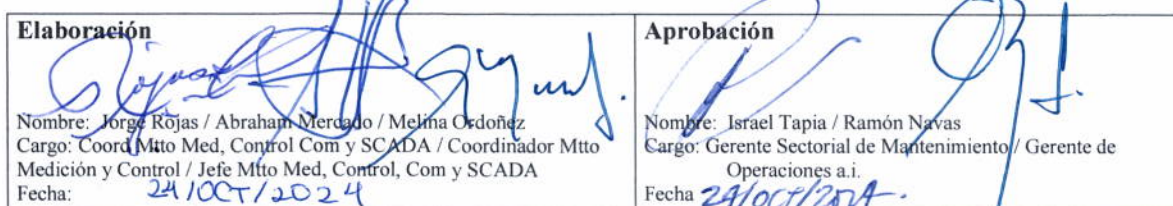 Elaboración
Nombre: Jorge Rojas / Abraham Mercado / Melina Ordoñez
Cargo: Coord Mtto Med, Control Com y SCADA / Coordinador Mtto
Medición y Control / Jefe Mtto Med, Control, Com y SCADA
Fecha: 24/OCT/2024
Aprobación
Nombre: Israel Tapia / Ramón Navas
Cargo: Gerente Sectorial de Mantenimiento / Gerente de
Operaciones a.i.
Fecha 24/oct/2024.